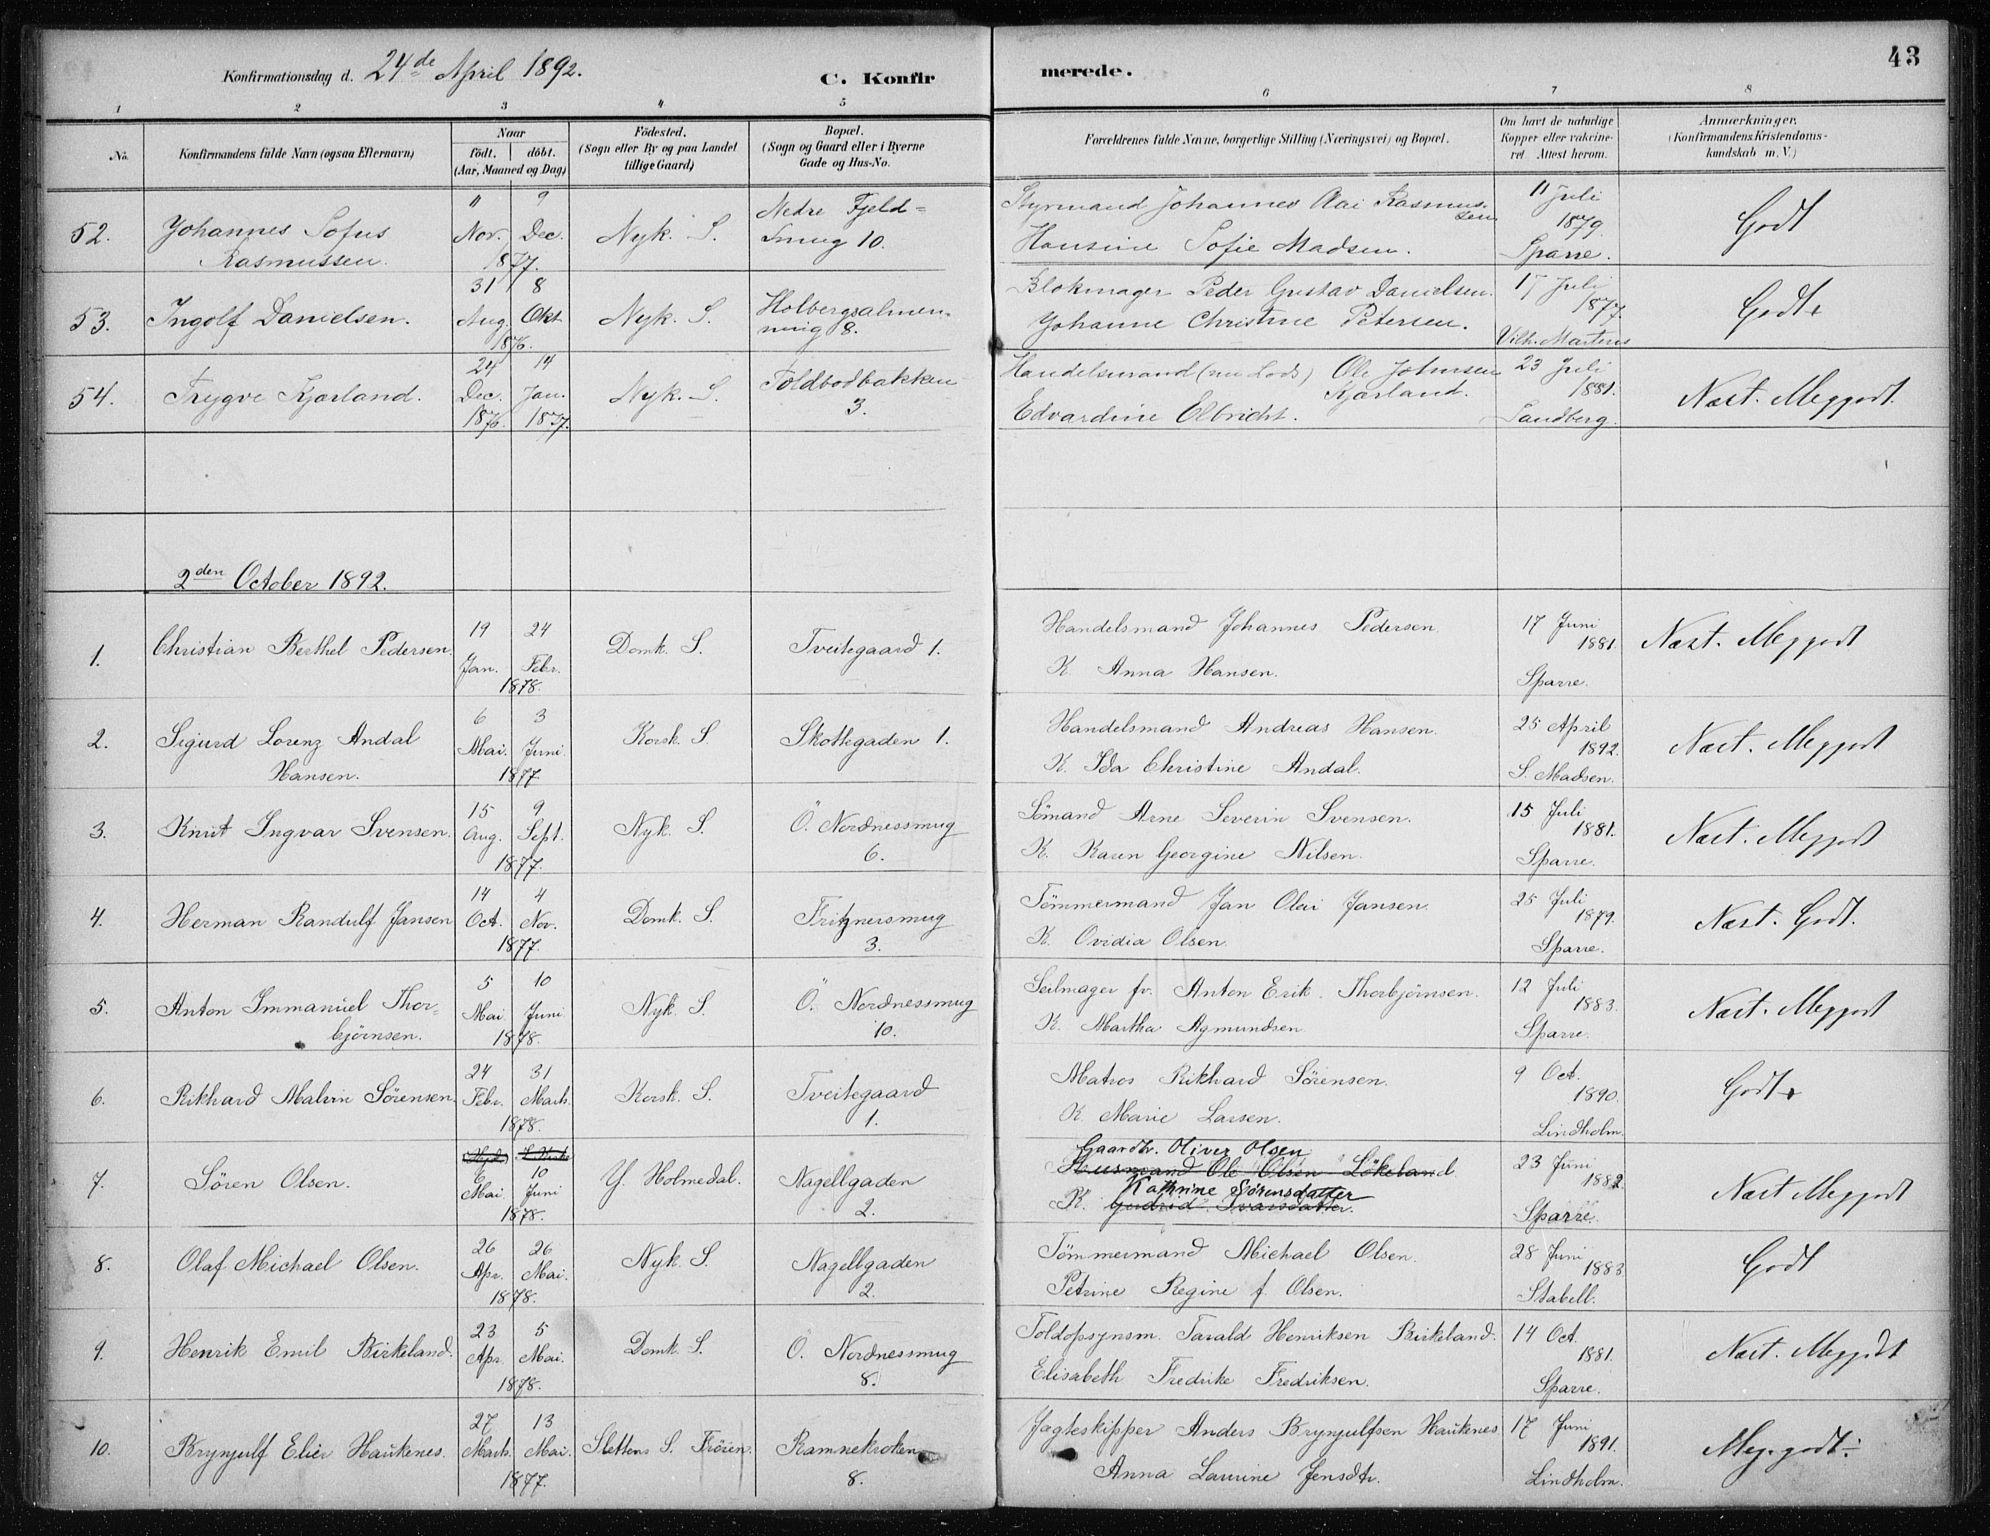 43
Konfirmationsdag d. 24de April 1892.
C. Konfirmerede.
1 2 3 4 5 6 7 8
No.
Konfirmandens fulde Navn (ogsaa Efternavn)
Naar
födt. döbt.
(Aar, Maaned og Dag)
Födested.
(Sogn eller By og paa Landet
tillige Gaard)
Bopæl.
(Sogn og Gaard eller i Byerne
Gade og Hus-No.
Forældrenes fulde Navne, borgerlige Stilling (Næringsvei) og Bopæl.
Om havt de naturlige
Kopper eller vakcine-
ret. Attest herom.
Anmærkninger,
(Konfirmandens Kristendoms-
kundskab m. V.)
52. Johannes Sofus
Rasmussen.
11 Nov. 9 Dec.
1877.
Nyk. S.
Nedre Fjeld=
smug 10.
Styrmand Johannes Rasmus-
sen
Hansine Sofie Madsen.
11 Juli
1879.
Sparre.
Godt
53. Ingolf Danielsen.
31 Aug. 8 Okt.
1876.
Nyk. S.
Holbergsalmen-
ning 8.
Blokmager Peder Gustav Danielsen.
Johanne Christine Petersen.
17 Juli
1877.
Vilh. Martens
Godt+
54. Trygve Kjærland.
24 Dec. 1876. 14 Jan. 1877.
Nyk. S.
Toldbodbakken
3.
Handelsmand (nu Lods) Ole Johnsen
Kjærland.
Edvardine Elbricht.
23 Juli
1881.
Sandberg.
Næst. Meggodt.
2den October 1892.
1. Christian Berthel Pedersen.
19 Jan. 24 Febr.
1878.
Domk. S.
Tveitegaard 1.
Handelsmand Johannes Pedersen.
K. Anna Hansen.
17 Juni
1881.
Sparre.
Næst. Meggodt
2. Sigurd Lorenz Andal
Hansen.
6 Mai. 3 Juni
1877.
Korsk. S.
Skottegaden 1.
Handelsmand Andreas Hansen.
K. Ida Christine Andal.
25 April
1892.
S. Madsen.
Næst. Meggodt
3. Knut Ingvar Svensen.
15 Aug. 9 Sept.
1877.
Nyk. S.
Ö. Nordnessmug
6.
Sömand Arne Severin Svensen.
K. Karen Georgine Nilsen.
15 Juli
1881.
Sparre.
Næst. Meggodt
4. Herman Randulf Jansen
14 Oct. 4 Nov.
1877.
Domk. S.
Fritznersmug
3.
Tömmermand Jan Olai Jansen.
K. Ovidia Olsen.
25 Juli
1879.
Sparre.
Næst. Godt.
5. Anton Immanuel Thor-
björnsen.
5 Mai 10 Juni
1878.
Nyk. S.
Ö. Nordnessmug
10.
Seilmager fv. Anton Erik Thorbjörnsen.
K. Martha Agmundsen.
12 Juli
1883.
Sparre.
Næst. Meggodt
6. Rikhard Malvin Sörensen.
24 Febr. 31 Marts.
1878.
Korsk. S.
Tveitegaard
1.
Matros Rikhard Sörensen.
K. Marie Larsen.
9 Oct.
1890.
Lindholm.
Godt+
7. Sören Olsen.
6 Mai 10 Juni
1878.
Y. Holmedal.
Nagellgaden
2.
Gaardbr. Oliver Olsen
Husmand Ole Olsen Lökeland
Kathrine Sörensdatter
K. Gudrid Ivarsdatter.
23 Juni
1882.
Sparre.
Næst Meggodt
8. Olaf Michael Olsen.
26 Apr. 26 Mai.
1878.
Nyk. S.
Nagellgaden
2.
Tömmermand Michael Olsen.
Petrine Regine f. Olsen.
28 Juni
1883.
Stabell.
Godt
9. Henrik Emil Birkeland.
23 Apr. 5 Mai.
1878.
Domk. S.
Ö. Nordnessmug
8.
Toldopsynsm. Tarald Henriksen Birkeland.
Elisabeth Fredrike Fredriksen.
14 Oct.
1881.
Sparre.
Næst. Meggodt
10. Brynjulf Elier Haukenes.
27 Marts. 13 Mai.
1877.
Slettens S. Tröien.
Ramnekroken
8.
Jagteskipper Anders Brynjulfsen Haukenes
Anna Laurine Jensdtr.
17 Juni
1891.
Lindholm.
Meg. godt÷